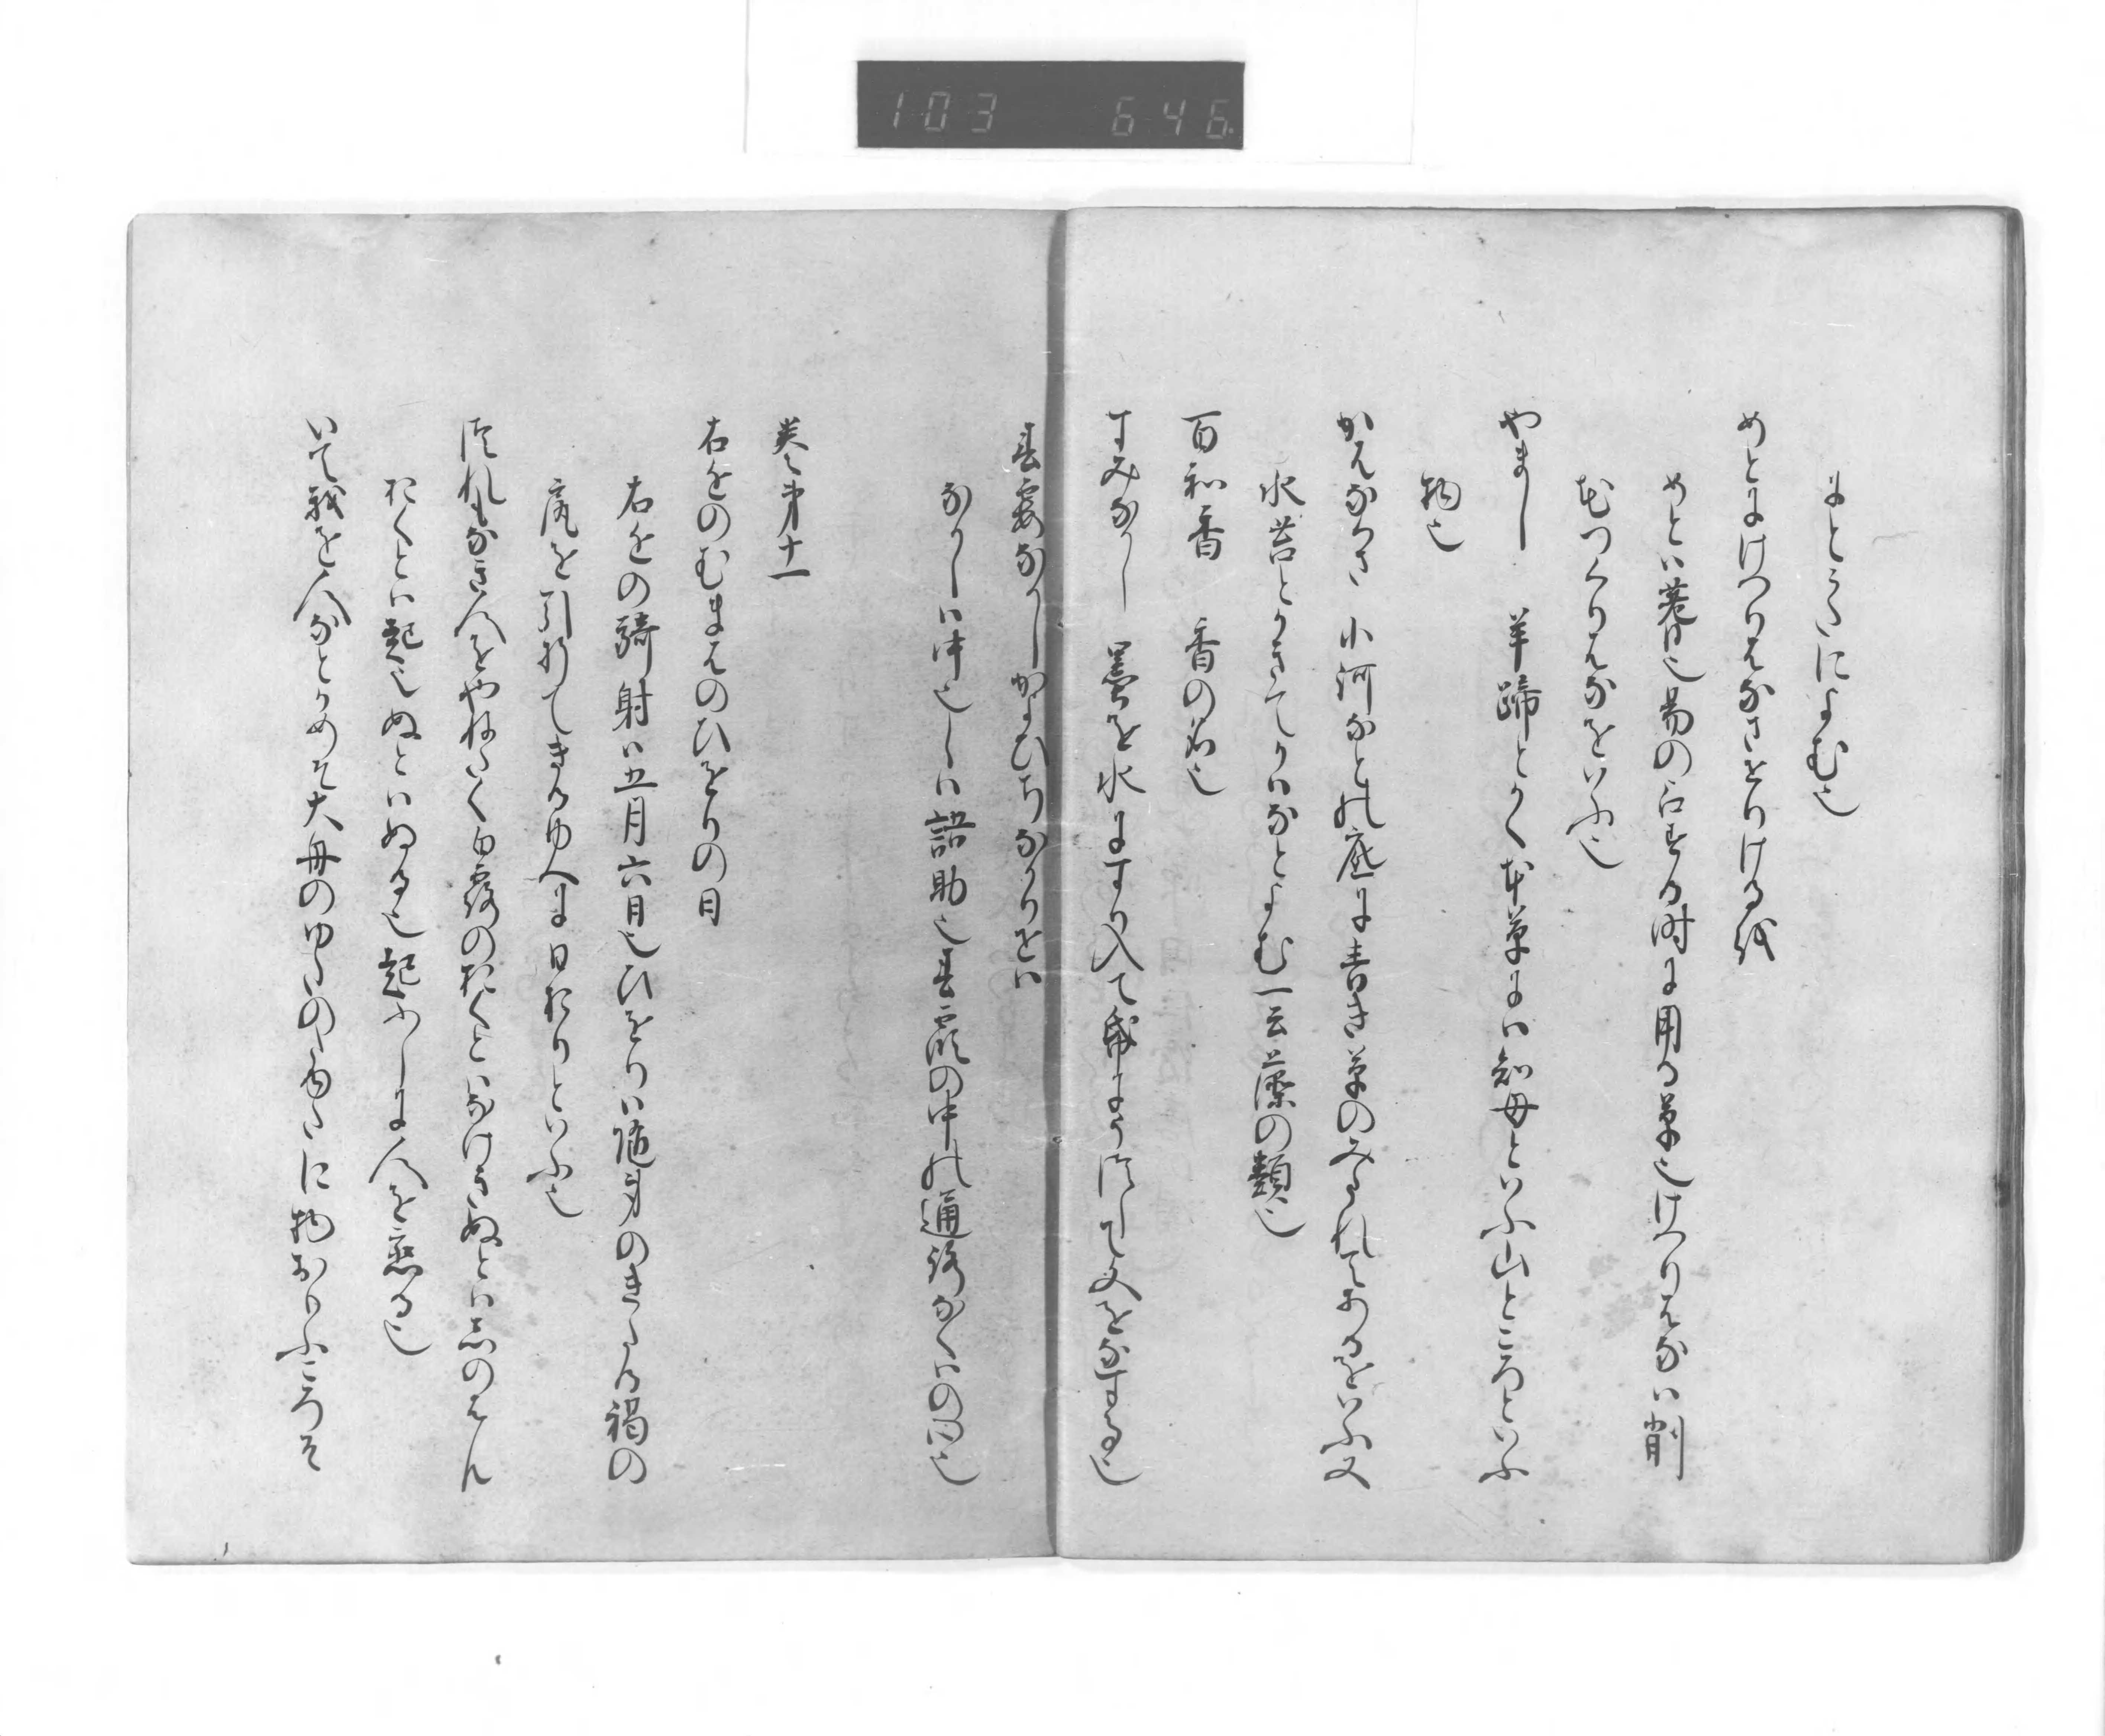 103 646
まとゝいによむ也
めとにけつりはなさせりける
めとハ蓍也易の占する時に用る草也けつりはなハ削
むつくりはなをいふ也
やまし 羊蹄とかく本草にハ知母といふ山ところといふ
物也
かはなくさ 小河なとの底に青き草のみたれてあるをいふ又
水苔とかきてかハなとよむ一云藻の類也
百和香 香の名也
すみなかし 墨を水にすり入て帋にうつして文をなする也
春霞なかしかよひちなかりせハ
なかしハ中也しハ語助也春霞の中の通路なくハの心也
巻第十一
右近のむまはのひをりの日
右近の騎射ハ五月六日也ひをりハ随身のきたる褐の
尻を引折てきるゆへに日おりといふ也
つれもなき人をやねたく白露のおくとハなけきぬとハしのはん
おくとハ起也ぬとハぬる也起ふしに人を恋る也
いて我を人なとかめそ大舟のゆたのたゆたに物おもふころそ